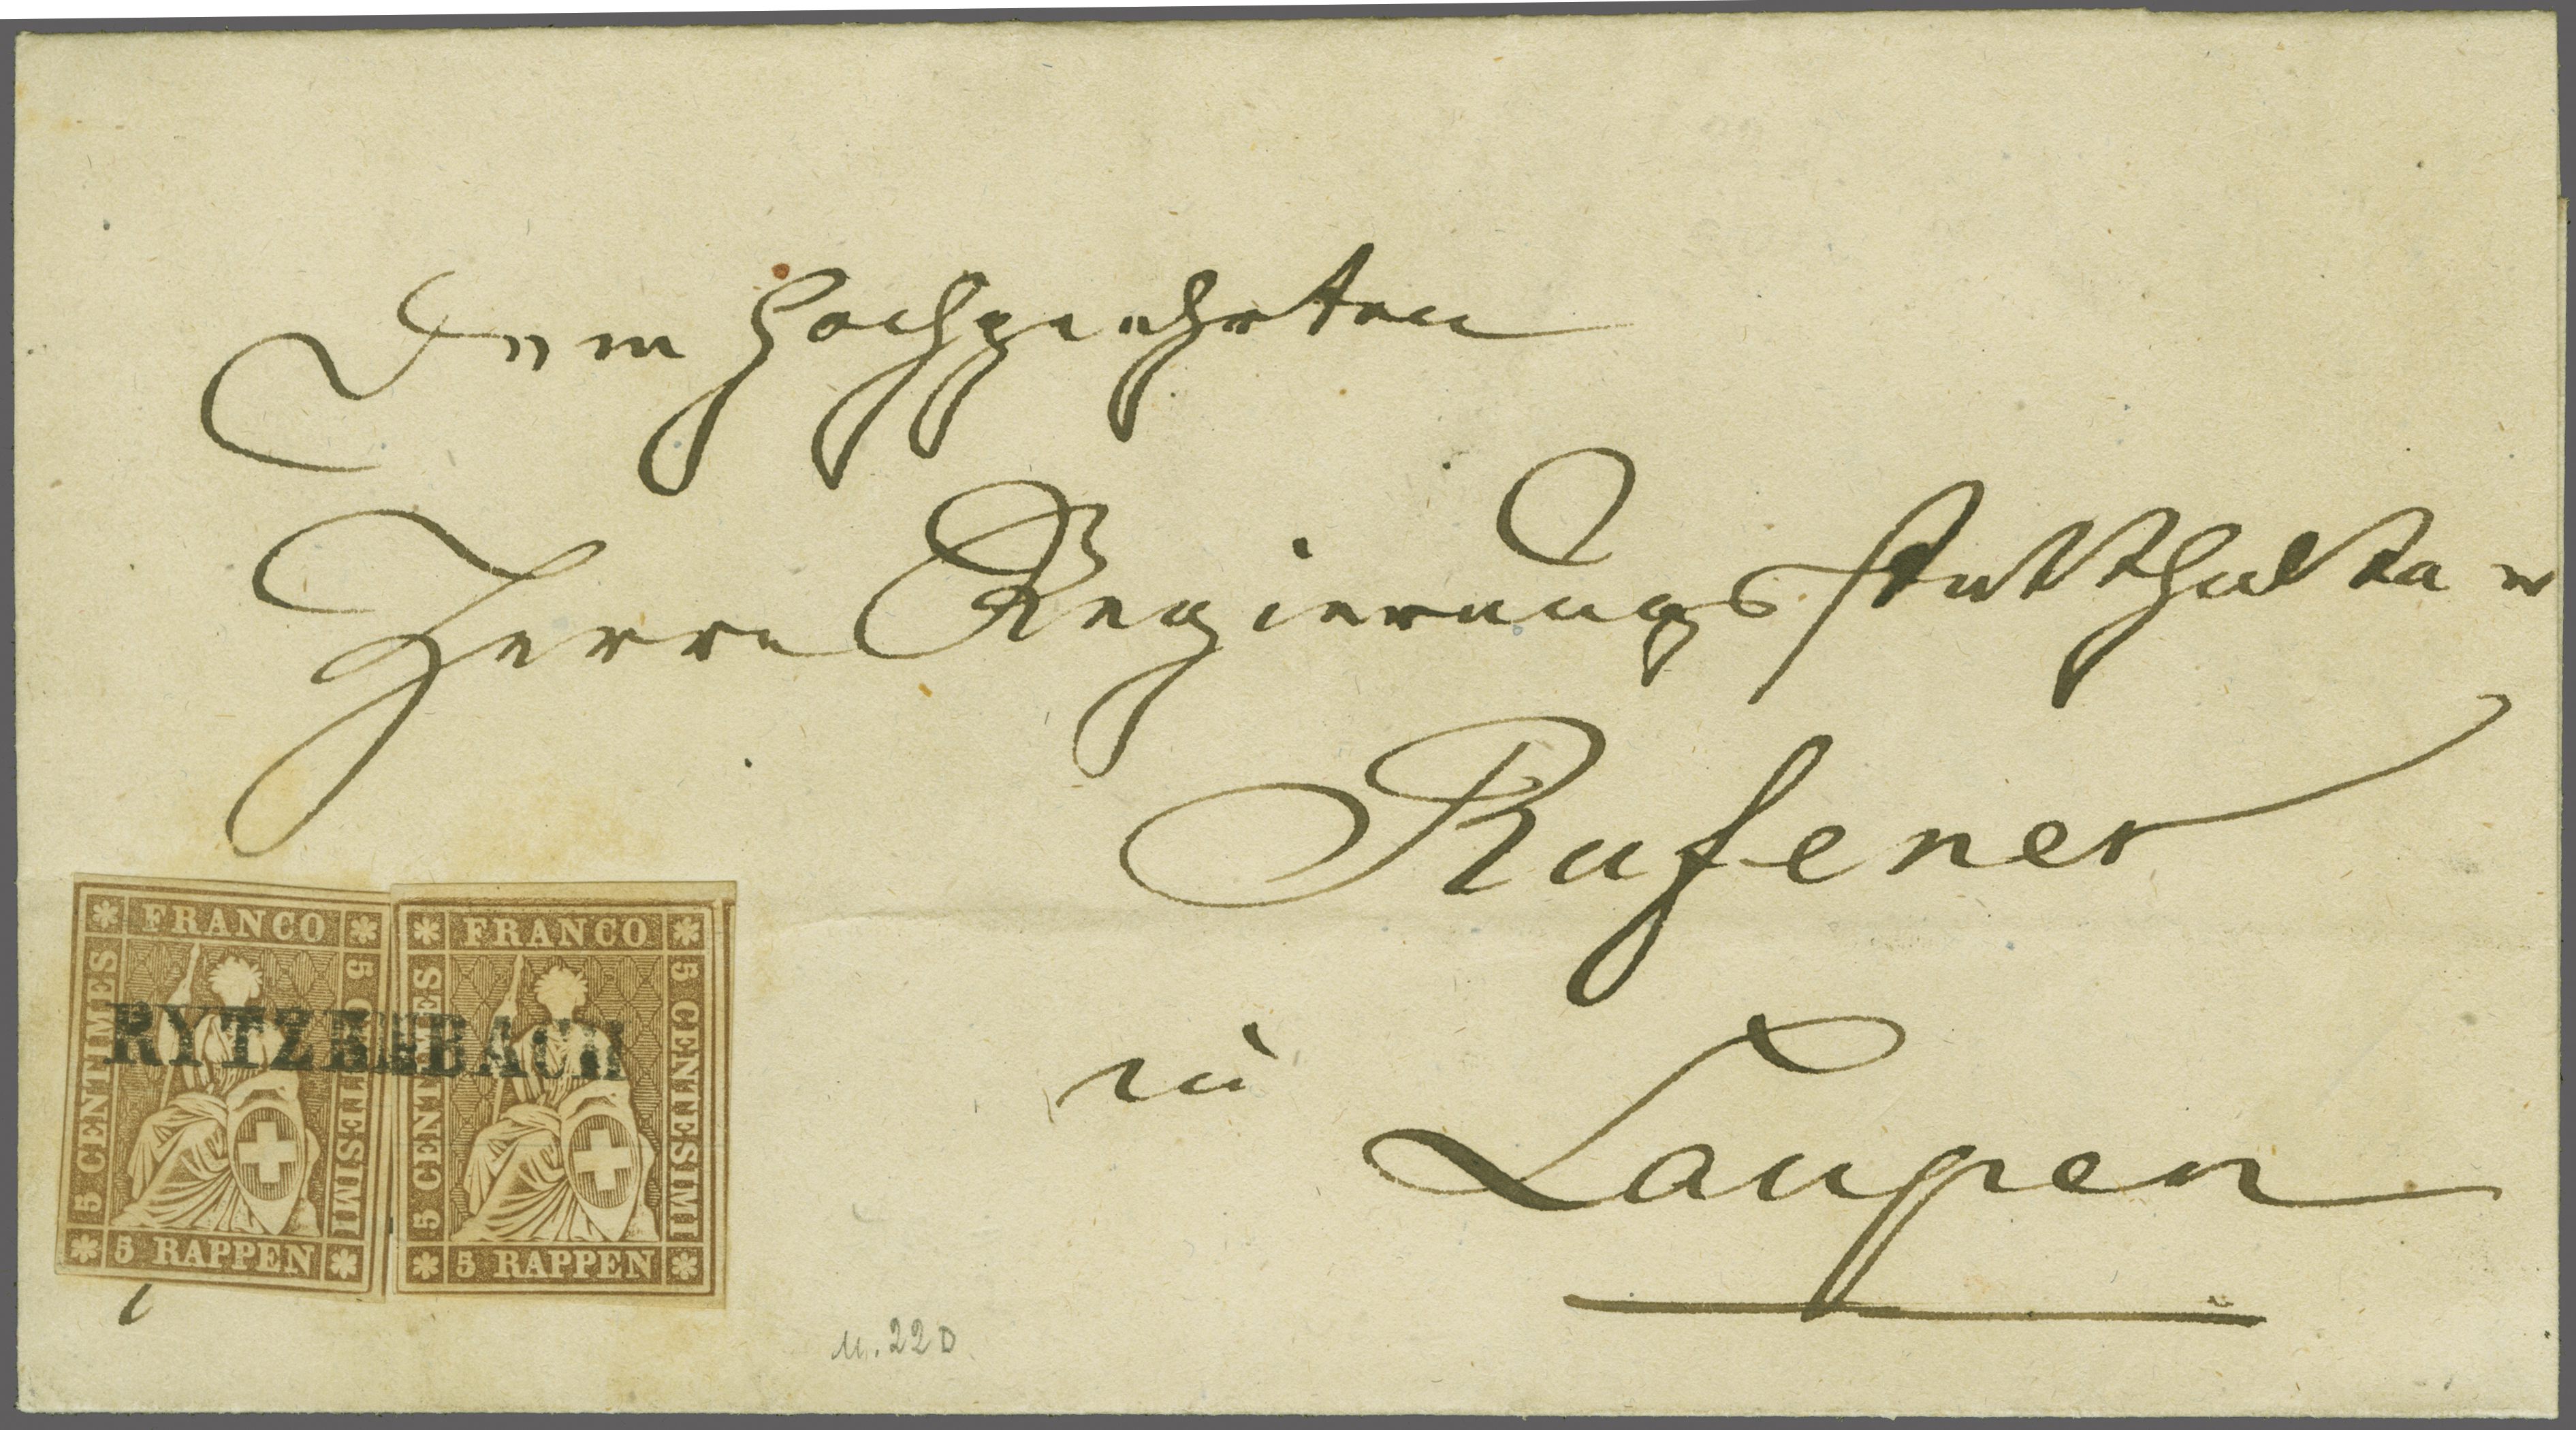 Dem Hochgeehrten
Herrn Regierungsstatthalter
Rufener
in
Laupen
FRANCO
5 CENTIMES
5 CENTESIMI
5 RAPPEN
FRANCO
5 CENTIMES
5 CENTESIMI
5 RAPPEN
RYTZENBACH
M. 22D